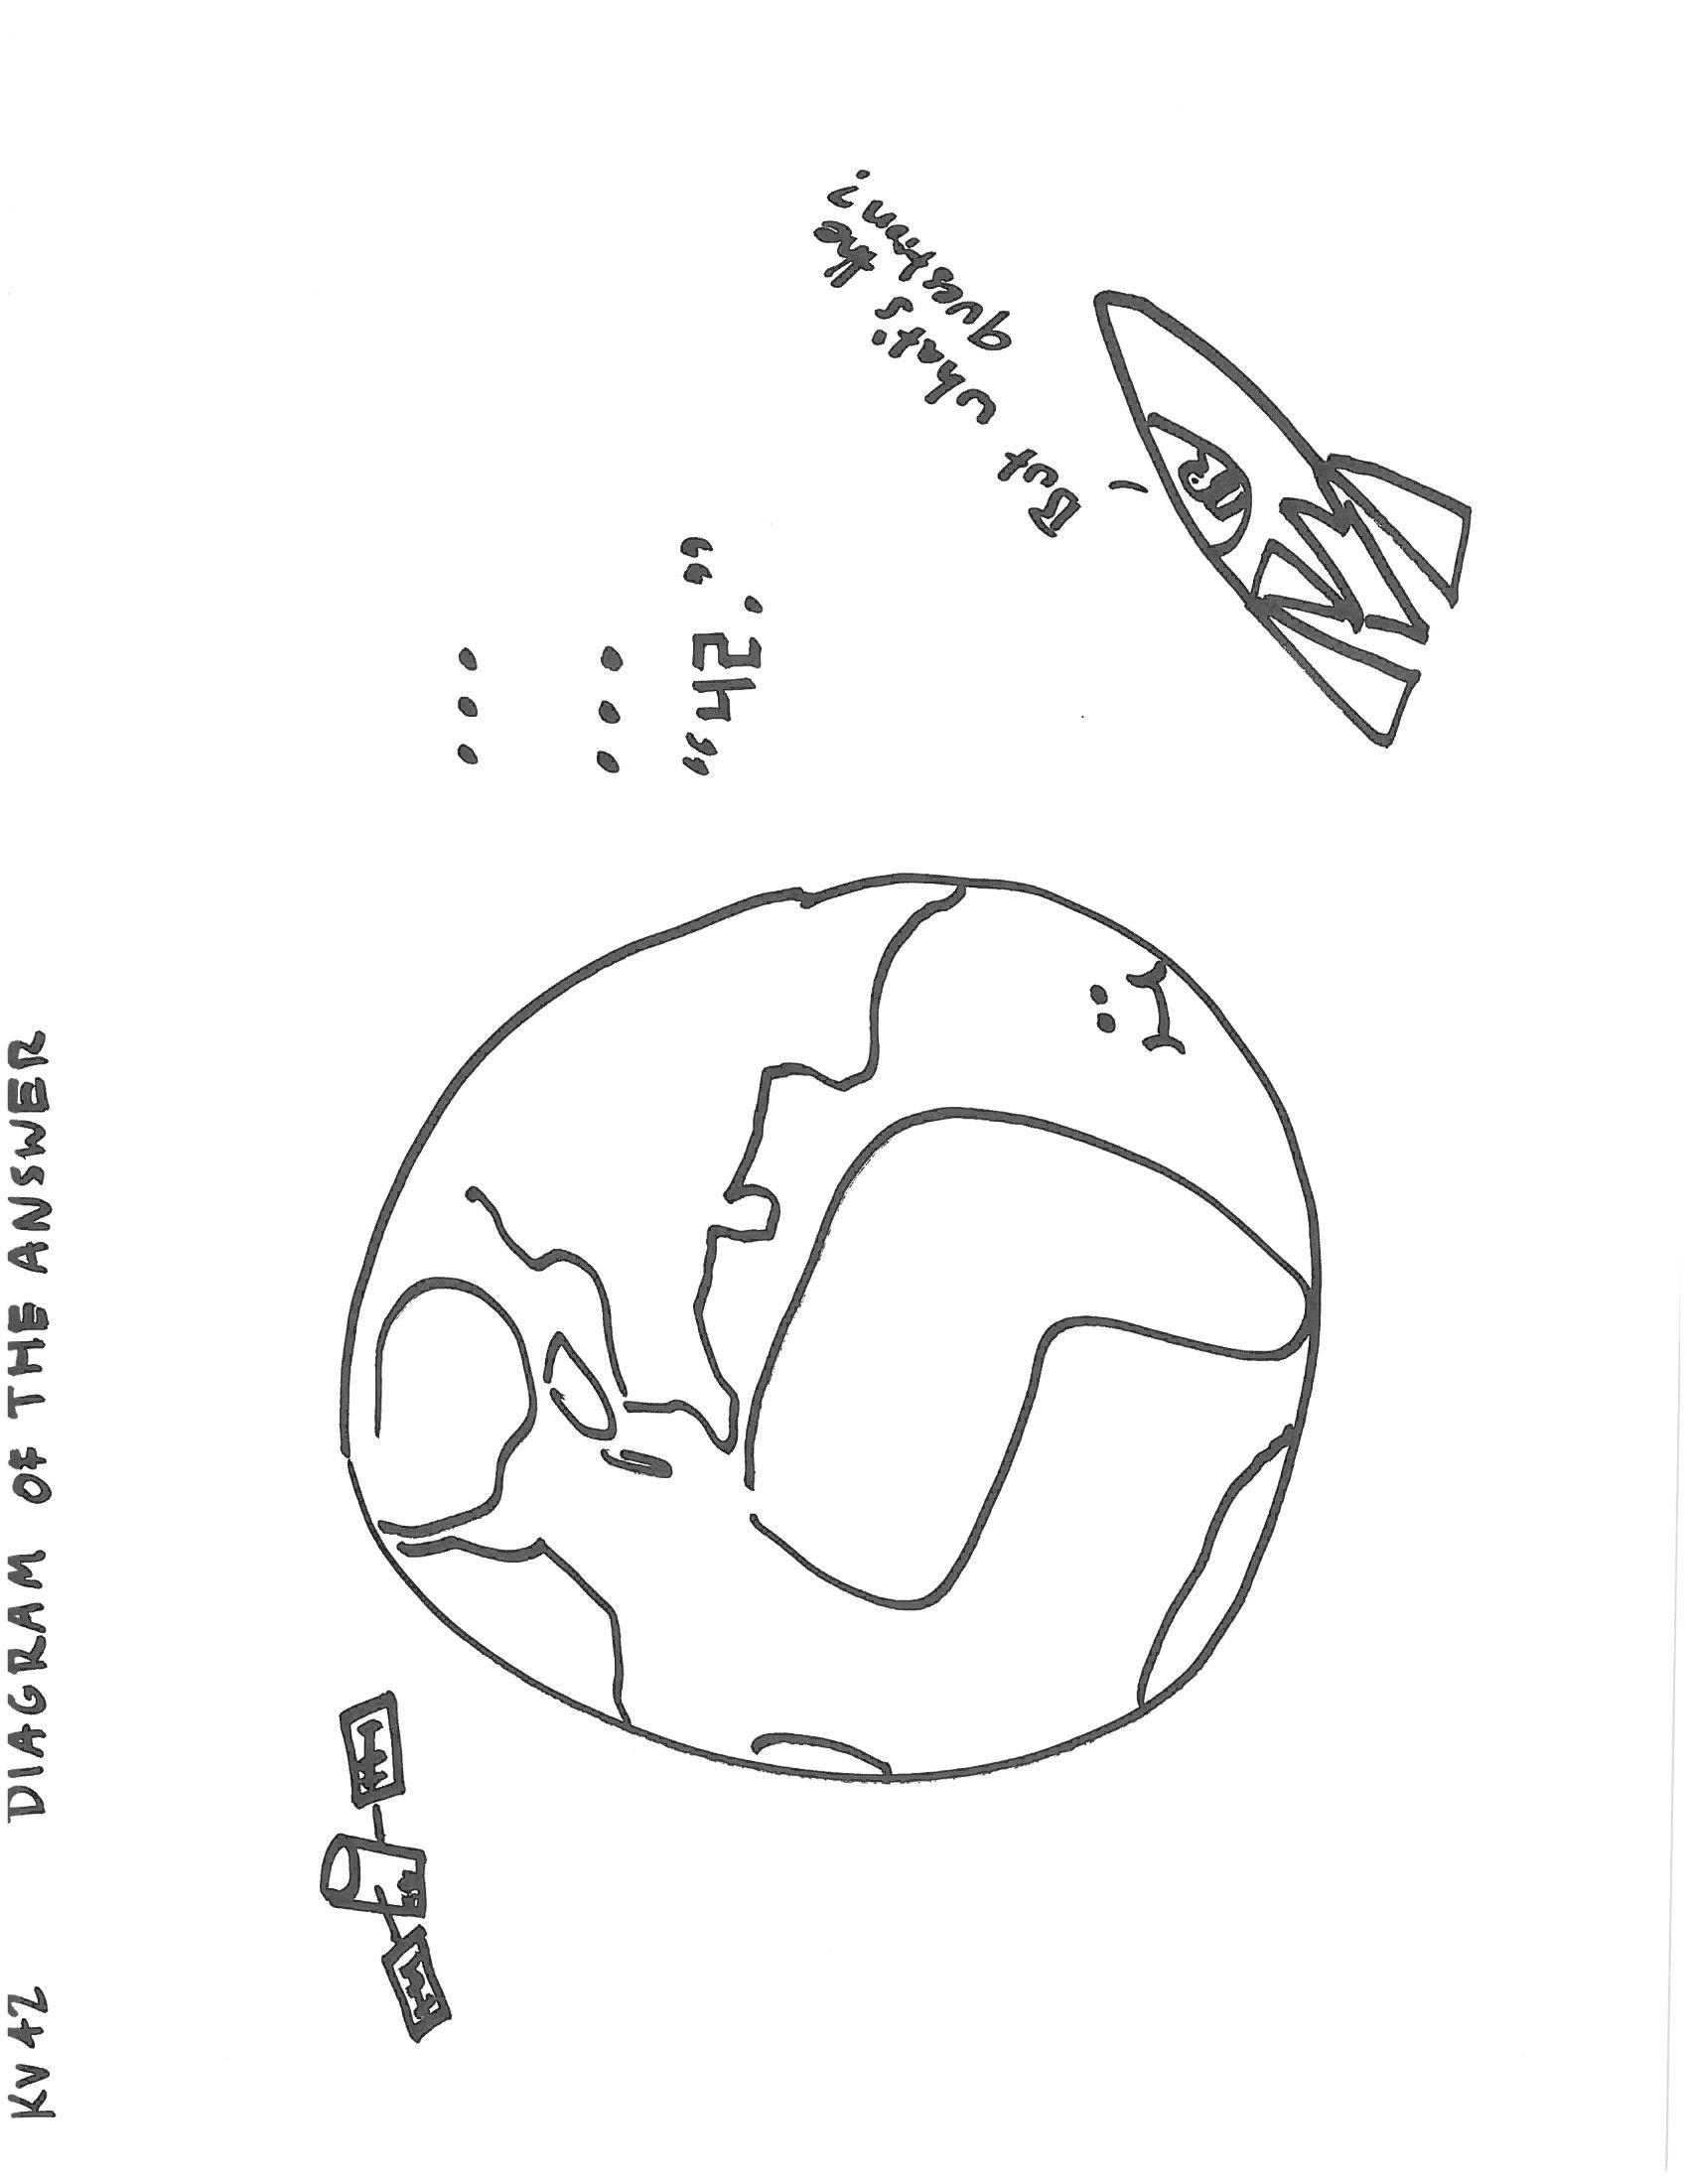 KV 42 DIAGRAM OF THE ANSWER
...
...
"42."
But what's the
question?